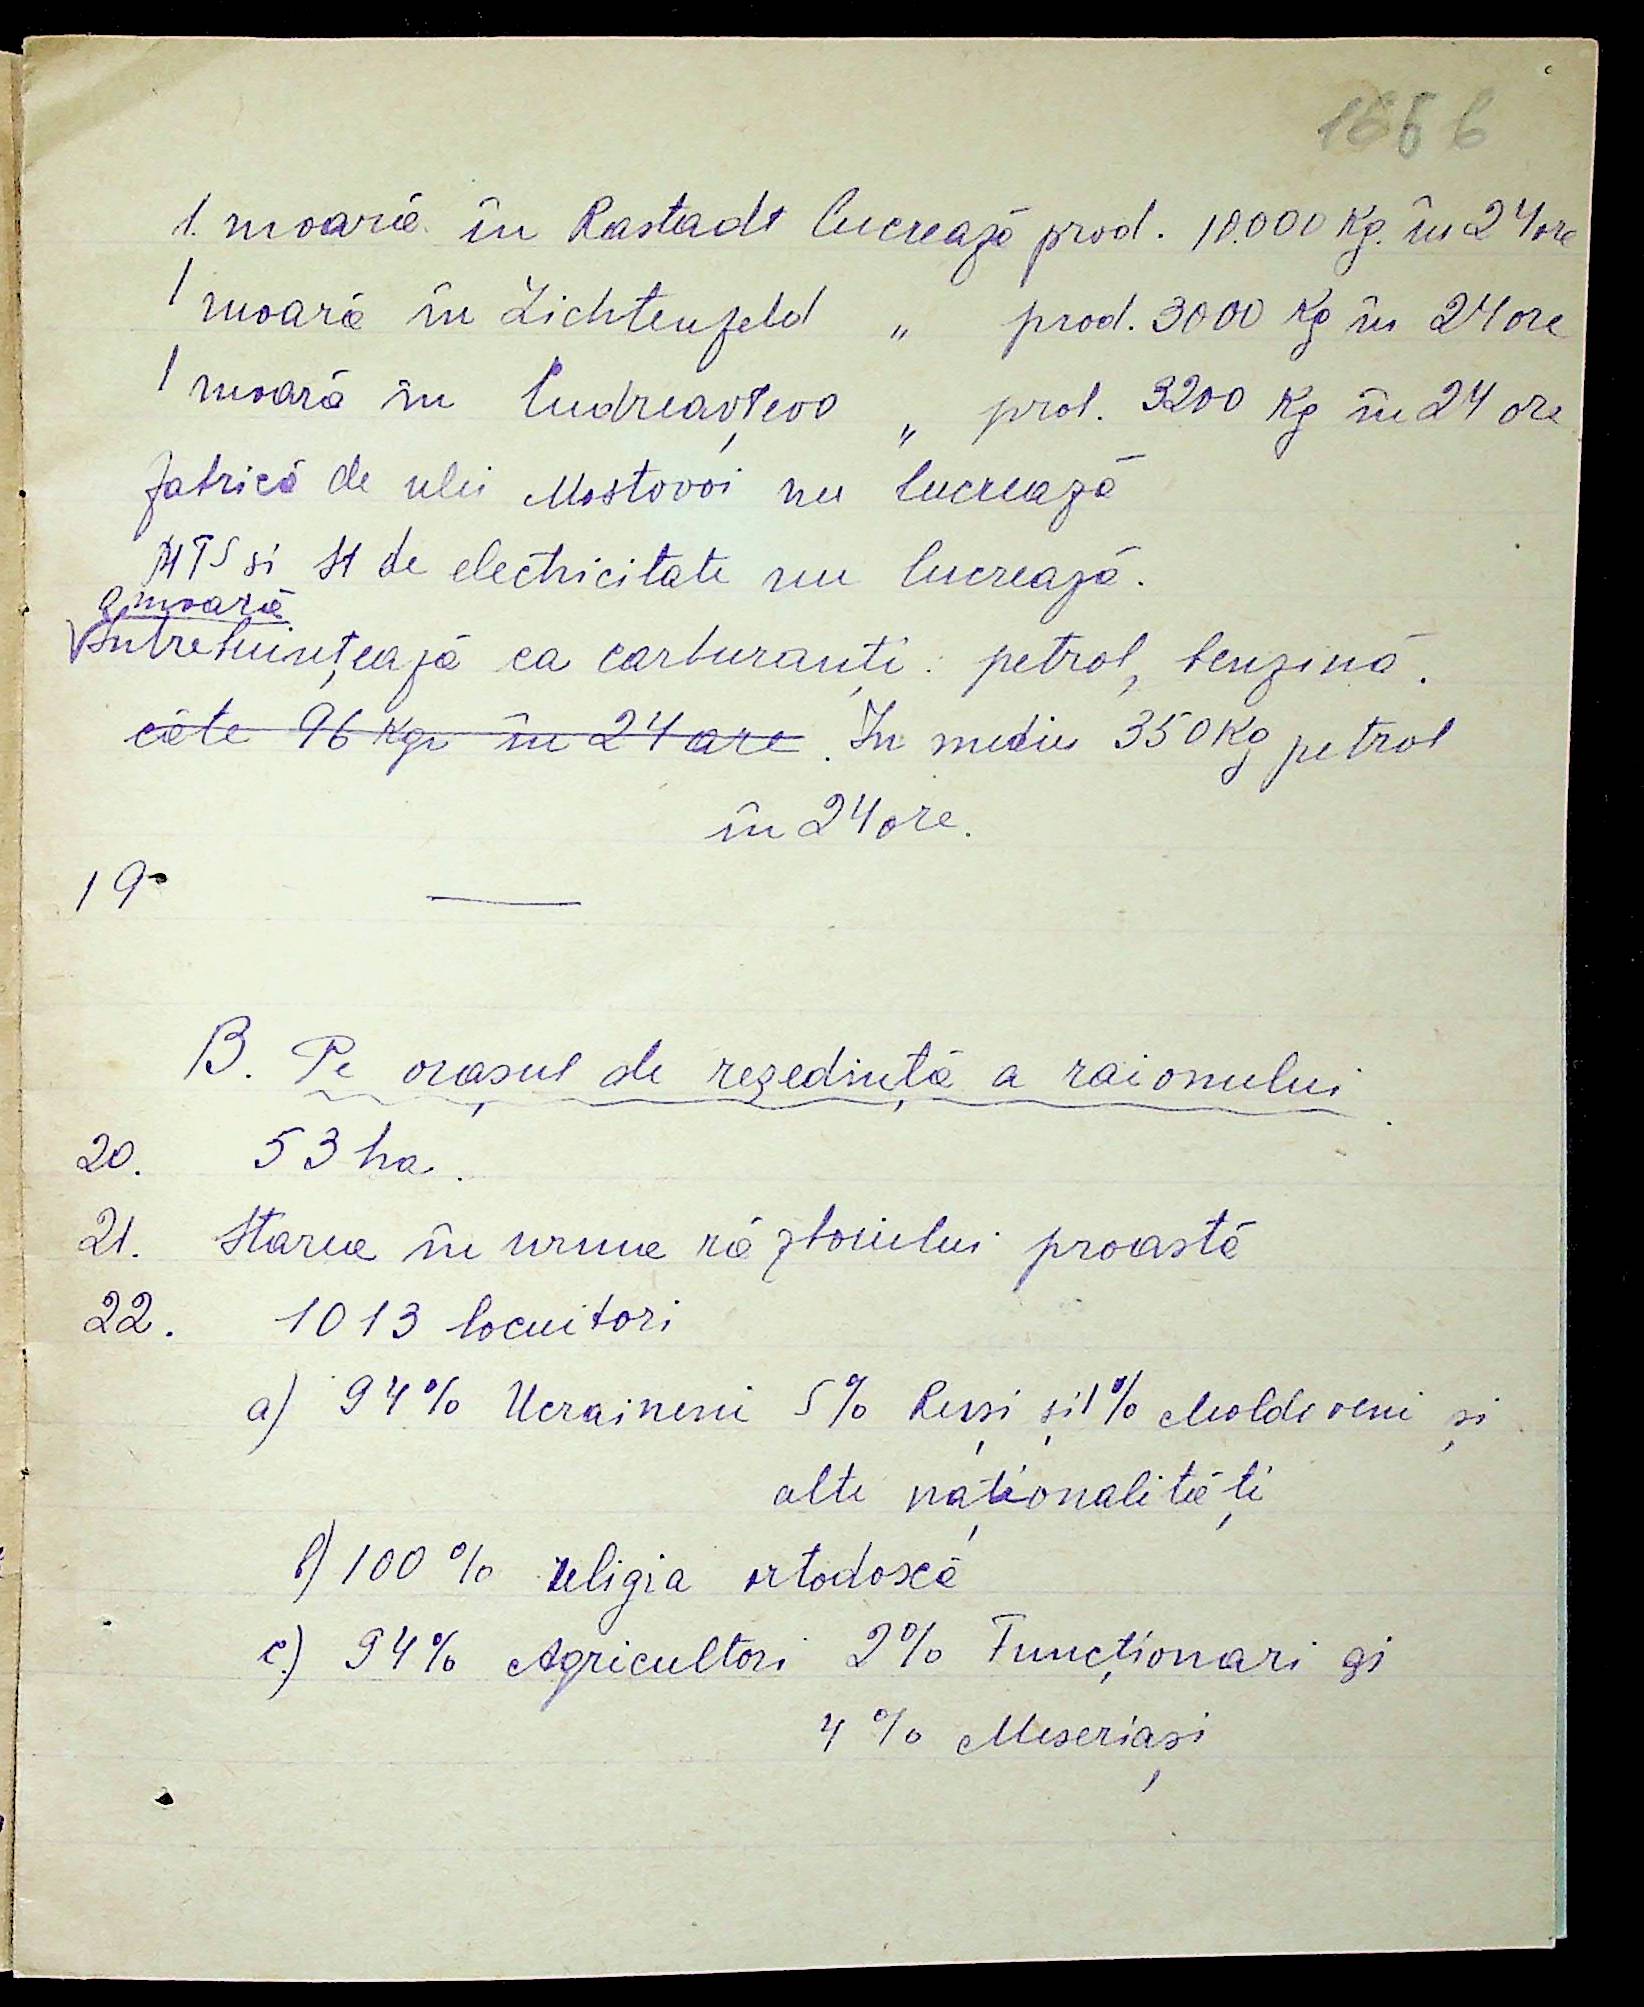 1. moară în Rastadt lucrează prod. 10.000 Kg. în 24 ore
1 moară în Lichtenfeld „ prod. 3000 Kg în 24 ore
1 moară în „ prod. 3200 Kg în 24 ore
fabrică de ulei Mostovoi nu lucrează
MTS si St de electricitate nu lucrează.
moară
întrebuințează ca carburanți: petrol, benzină.
câte 96 Kgr în 24 ore. În mediu 350 Kg petrol
în 24 ore.
19. —
B. Pe orașul de rezedință a raionului.
20. 53 ha.
21. Starea în urma războiului proastă
22. 1013 locuitori
a) 94% Ucraineni 5% Ruși și 1% Moldoveni și
alte naționalități
b) 100% religia ortodoxă
c.) 94% Agricultori 2% Funcționari și
4% Meseriași